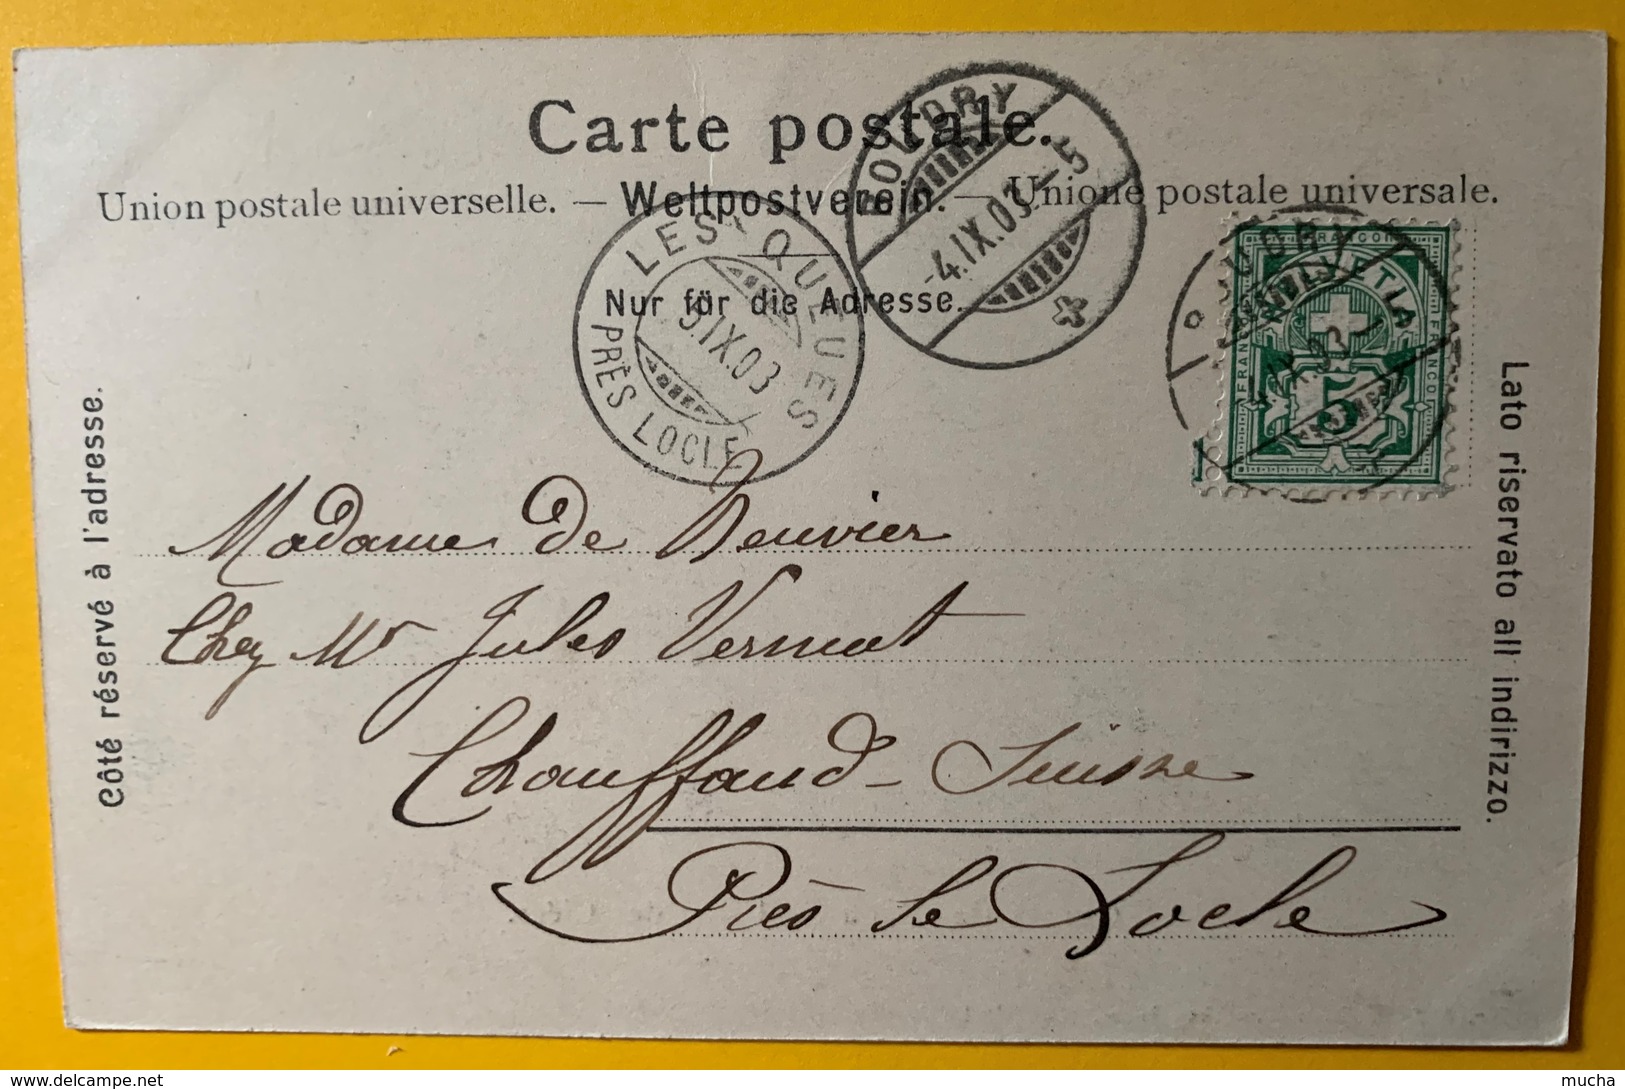 Carte postale.
Union postale universelle. — Weltpostverein. — Unione postale universale.
Nur für die Adresse.
Côté réservé à l'adresse.
Lato riservato all indirizzo.
BOUDRY
-4.IX.03.—5
LES QUEUES
5.IX.03
PRÈS LOCLE
BOUDRY
FRANCO
HELVETIA
FRANCO
FRANCO
5
Madame de Reuvier
Chez Mr Jules Vermot
Chauffaud – Suisse
Près le Locle
delcampe.net
mucha